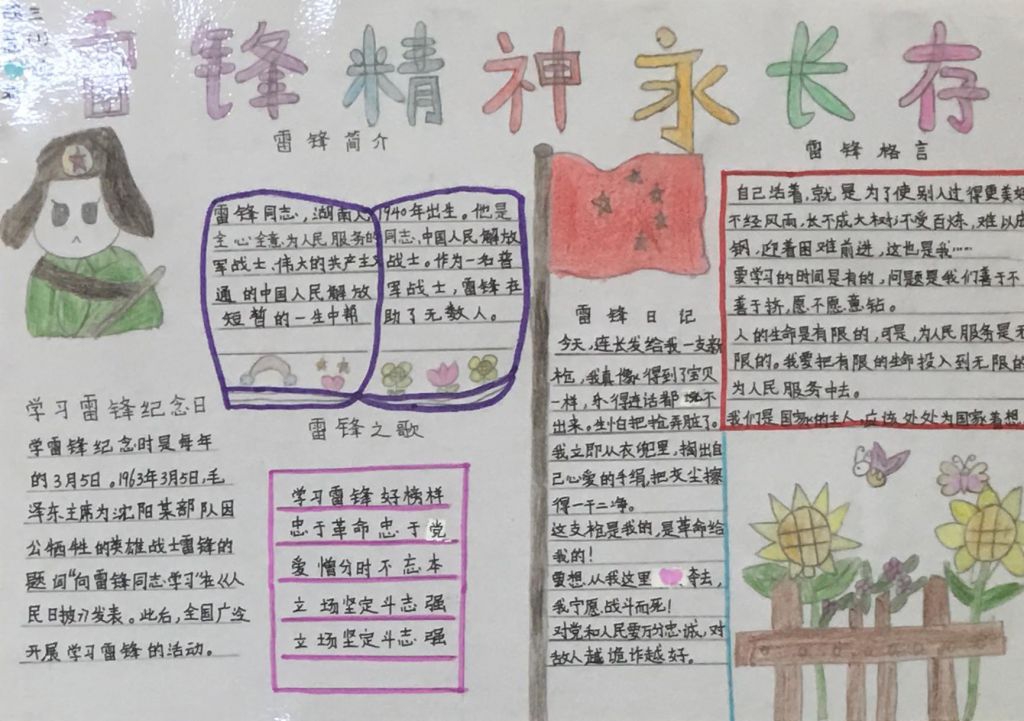 雷锋精神永长存
雷锋简介
雷锋同志，湖南人，1940年出生。他是
全心全意为人民服务的同志，中国人民解放
军战士、伟大的共产主义战士。作为一名普
通的中国人民解放军战士，雷锋在
短暂的一生中帮助了无数人。
学习雷锋纪念日
学雷锋纪念时是每年
的3月5日。1963年3月5日，毛
泽东主席为沈阳某部队因
公牺牲的英雄战士雷锋的
题词“向雷锋同志学习”在《人
民日报》发表。此后，全国广泛
开展学习雷锋的活动。
雷锋之歌
学习雷锋好榜样
忠于革命忠于党
爱憎分时不忘本
立场坚定斗志强
立场坚定斗志强
雷锋日记
今天，连长发给我一支新
枪，我真像得到了宝贝
一样，乐得连话都说不
出来。生怕把枪弄脏了。
我立即从衣兜里，掏出自
己心爱的手绢，把灰尘擦
得一干二净。
这支枪是我的，是革命给
我的！
要想从我这里夺去，
我宁愿战斗而死！
对党和人民要万分忠诚，对
敌人越诡诈越好。
雷锋格言
自己活着，就是为了使别人过得更美好
不经风雨，长不成大树，不受百炼，难以成
钢，迎着困难前进，这也是我……
爱学习的时间是有的，问题是我们善于不
善于挤，愿不愿意钻。
人的生命是有限的，可是，为人民服务是无
限的。我要把有限的生命投入到无限的
为人民服务中去。
我们是国家的主人，应该处处为国家着想